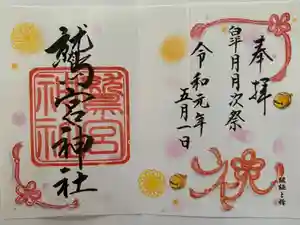 奉拝
皐月月次祭
令和元年
五月一日
祝
鷲宮神社
鷲宮
神社